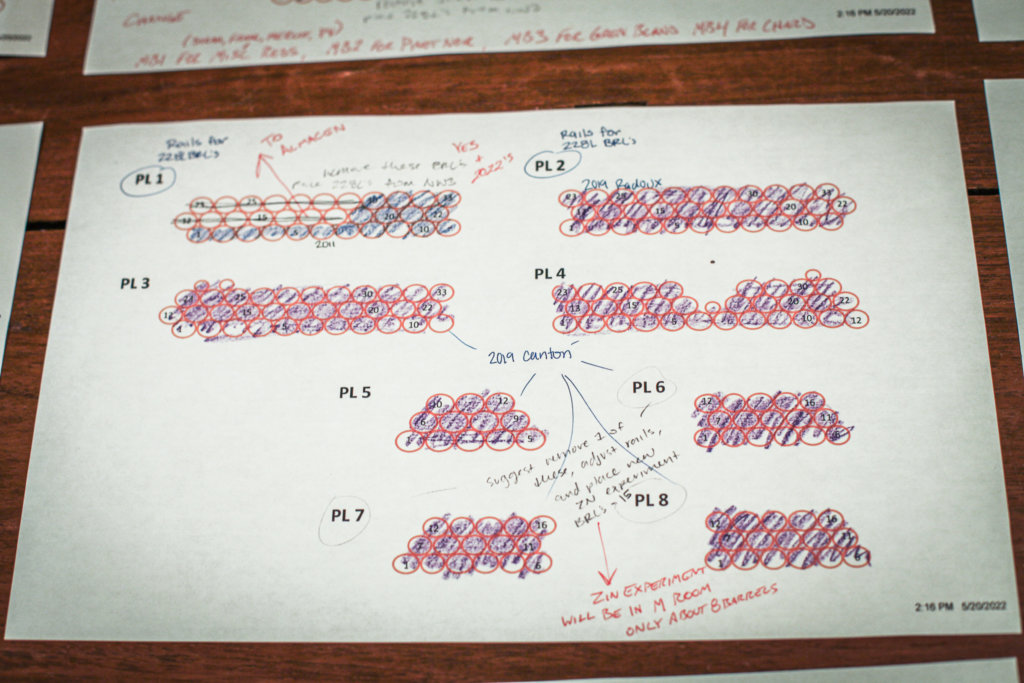 CHANGE
(SYRAH, FRANC, MERLOT, PV)
MB1 FOR MISC REDS, MB2 FOR PINOT NOIR, MB3 FOR GREEN BLANDS MB4 FOR CHARD
2:16 PM 5/20/2022
Rails for
228L BRL's
TO
ALMACEN
PL 1
remove these BRL's
place 228L's from NW3
YES
+
2022's
23 25 30 33
12 15 20 22
1 5 10
2011
Rails for
228L BRL's
PL 2
2019 Radoux
23 25 30 33
15 20 22
1 5 10
PL 3
23 25 30 33
12 15 20 22
1 5 10
PL 4
23 25 30
13 15 20 22
1 6 10 12
2019 Canton
PL 5
10 12
6 9
1 5
PL 6
12 16
7 11
1 6
suggest remove 1 of
these, adjust rails,
and place new
ZN experiment
BRL's - 15
PL 7
12 16
7 11
1 6
PL 8
12 16
7 11
1 6
ZIN EXPERIMENT
WILL BE IN M ROOM
ONLY ABOUT 8 BARRELS
2:16 PM 5/20/2022